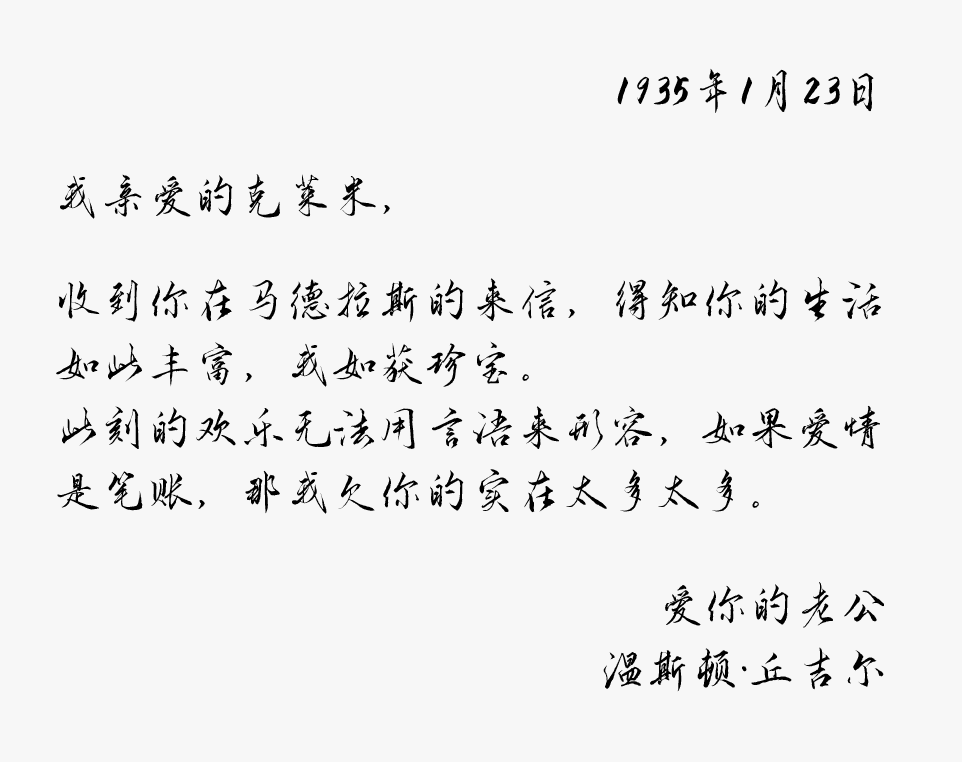 1935年1月23日
我亲爱的克莱米，
收到你在马德拉斯的来信，得知你的生活
如此丰富，我如获珍宝。
此刻的欢乐无法用言语来形容，如果爱情
是笔账，那我欠你的实在太多太多。
爱你的老公
温斯顿·丘吉尔